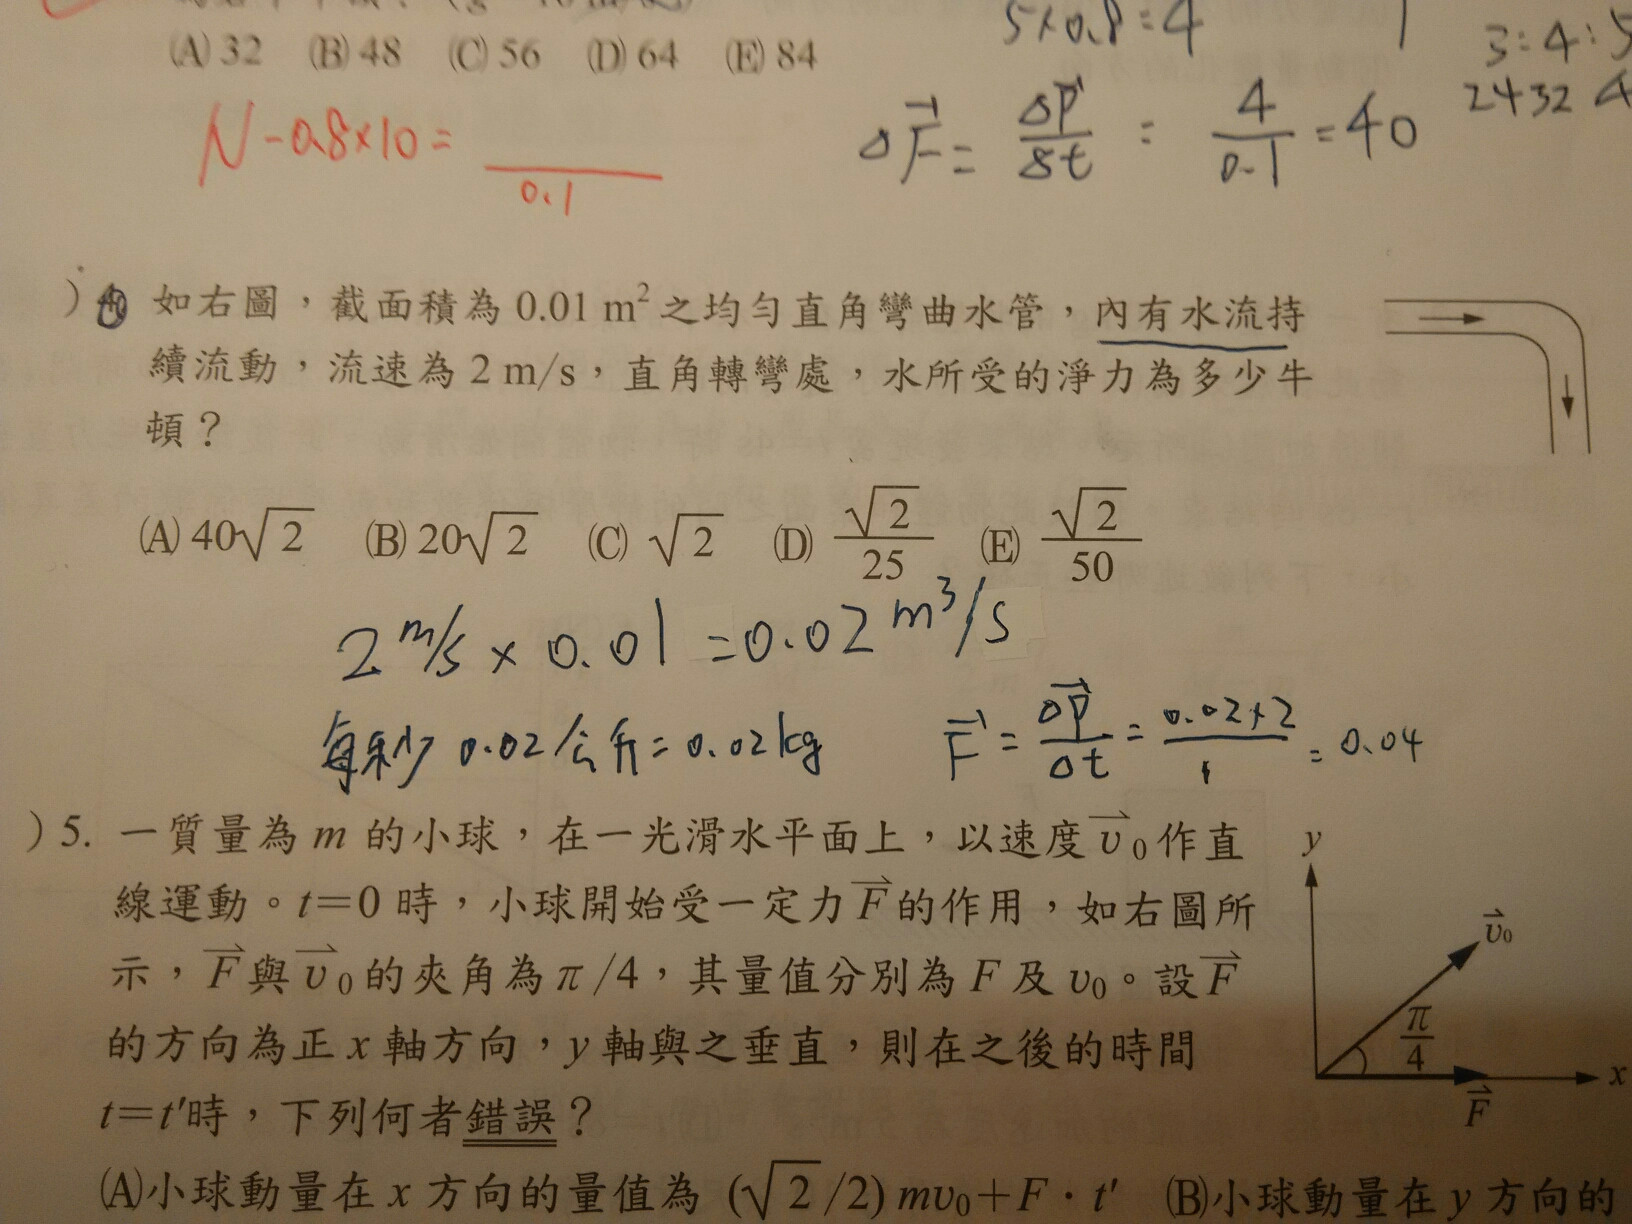 5×0.8=4
3:4:5
(A) 32 (B) 48 (C) 56 (D) 64 (E) 84
2432 4
N-0.8×10= ／0.1
ΔF= Δp／Δt = 4／0.1 =40
) 4 如右圖,截面積為 0.01 m²之均勻直角彎曲水管,內有水流持
續流動,流速為 2 m/s,直角轉彎處,水所受的淨力為多少牛
頓?
(A) 40√2 (B) 20√2 (C) √2 (D) √2／25 (E) √2／50
2 m/s × 0.01 =0.02 m³/s
每秒 0.02公升=0.02kg F = Δp／Δt = 0.02×2／1 = 0.04
) 5. 一質量為 m 的小球,在一光滑水平面上,以速度v₀作直
線運動。t=0 時,小球開始受一定力F的作用,如右圖所
示,F與v₀的夾角為π/4,其量值分別為 F 及 v₀。設F
的方向為正 x 軸方向,y 軸與之垂直,則在之後的時間
t=t'時,下列何者錯誤?
y
v₀
π／4
x
F
(A)小球動量在 x 方向的量值為 (√2/2) mv₀+F・t' (B)小球動量在 y 方向的